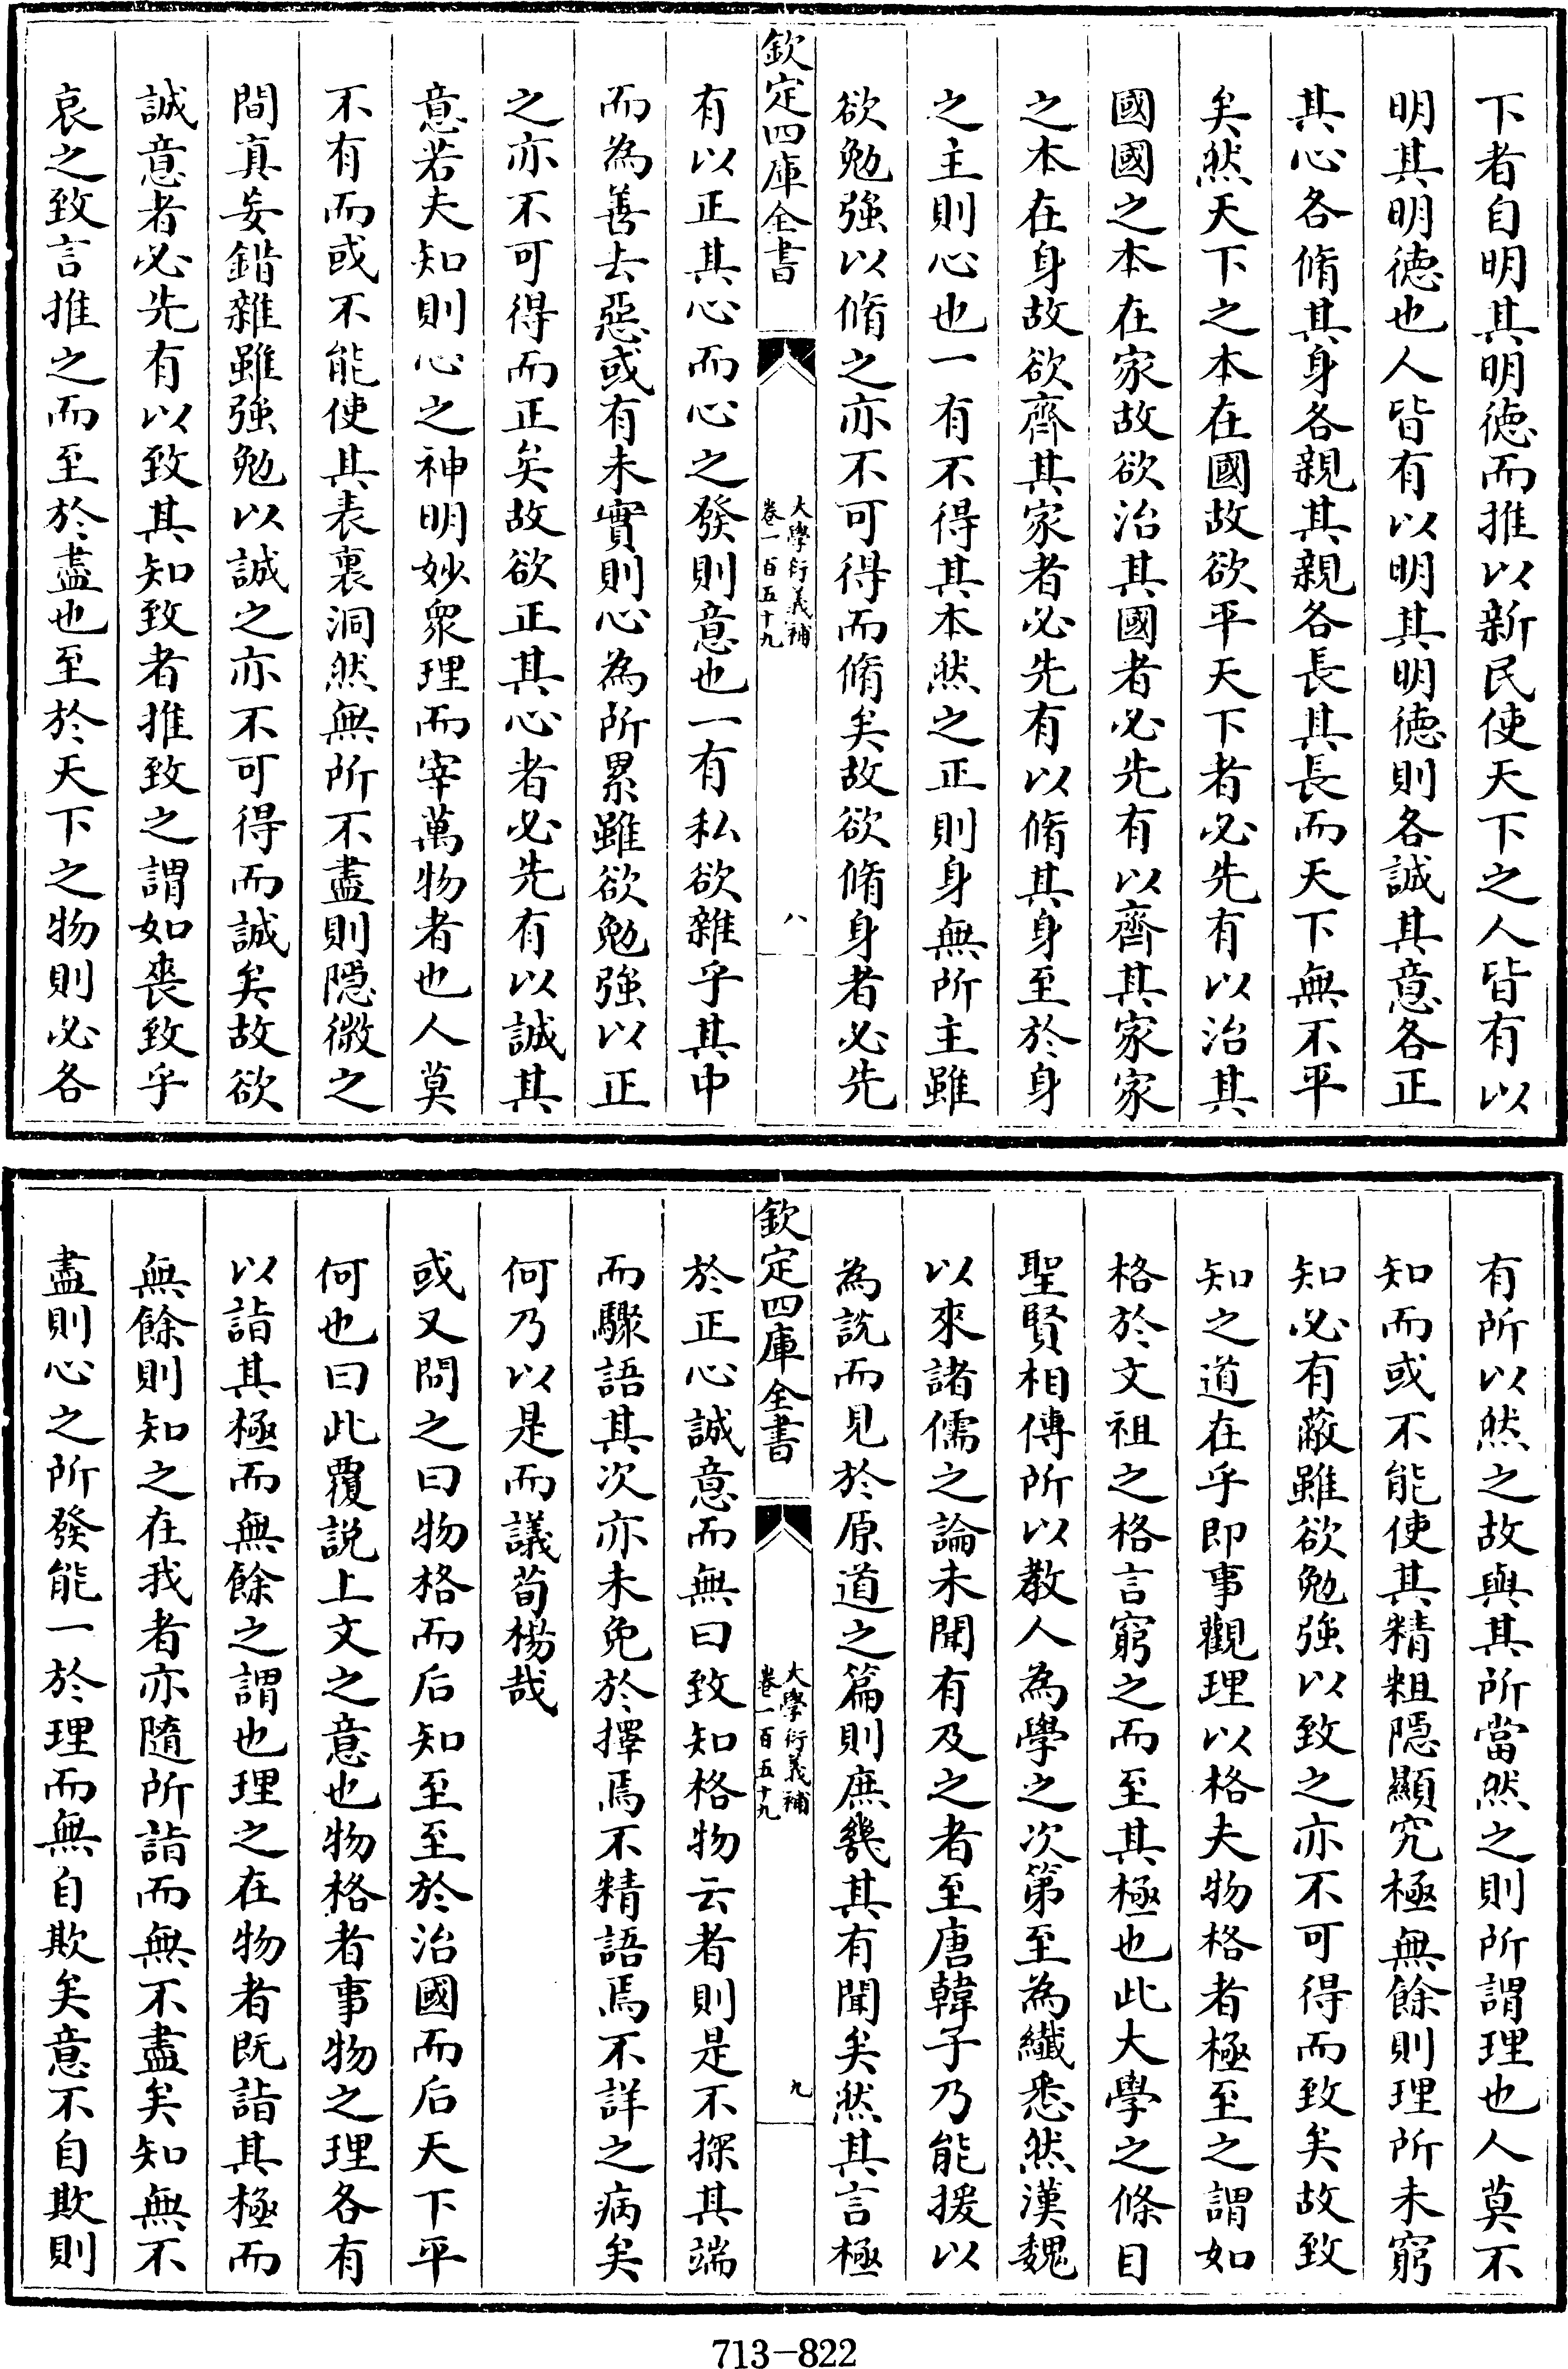 下者自明其明德而推以新民使天下之人皆有以
明其明德也人皆有以明其明德則各誠其意各正
其心各脩其身各親其親各長其長而天下無不平
矣然天下之本在國故欲平天下者必先有以治其
國國之本在家故欲治其國者必先有以齊其家家
之本在身故欲齊其家者必先有以脩其身至於身
之主則心也一有不得其本然之正則身無所主雖
欲勉強以脩之亦不可得而脩矣故欲脩身者必先
欽定四庫全書
大學衍義補
卷一百五十九
八
有以正其心而心之發則意也一有私欲雜乎其中
而為善去惡或有未實則心為所累雖欲勉強以正
之亦不可得而正矣故欲正其心者必先有以誠其
意若夫知則心之神明妙衆理而宰萬物者也人莫
不有而或不能使其表裏洞然無所不盡則隱微之
間真妄錯雜雖強勉以誠之亦不可得而誠矣故欲
誠意者必先有以致其知致者推致之謂如喪致乎
哀之致言推之而至於盡也至於天下之物則必各
有所以然之故與其所當然之則所謂理也人莫不
知而或不能使其精粗隱顯究極無餘則理所未窮
知必有蔽雖欲勉強以致之亦不可得而致矣故致
知之道在乎即事觀理以格夫物格者極至之謂如
格於文祖之格言窮之而至其極也此大學之條目
聖賢相傳所以教人為學之次第至為纖悉然漢魏
以來諸儒之論未聞有及之者至唐韓子乃能援以
為說而見於原道之篇則庶幾其有聞矣然其言極
欽定四庫全書
大學衍義補
卷一百五十九
九
於正心誠意而無曰致知格物云者則是不探其端
而驟語其次亦未免於擇焉不精語焉不詳之病矣
何乃以是而議荀楊哉
或又問之曰物格而后知至至於治國而后天下平
何也曰此覆説上文之意也物格者事物之理各有
以詣其極而無餘之謂也理之在物者既詣其極而
無餘則知之在我者亦隨所詣而無不盡矣知無不
盡則心之所發能一於理而無自欺矣意不自欺則
713-822